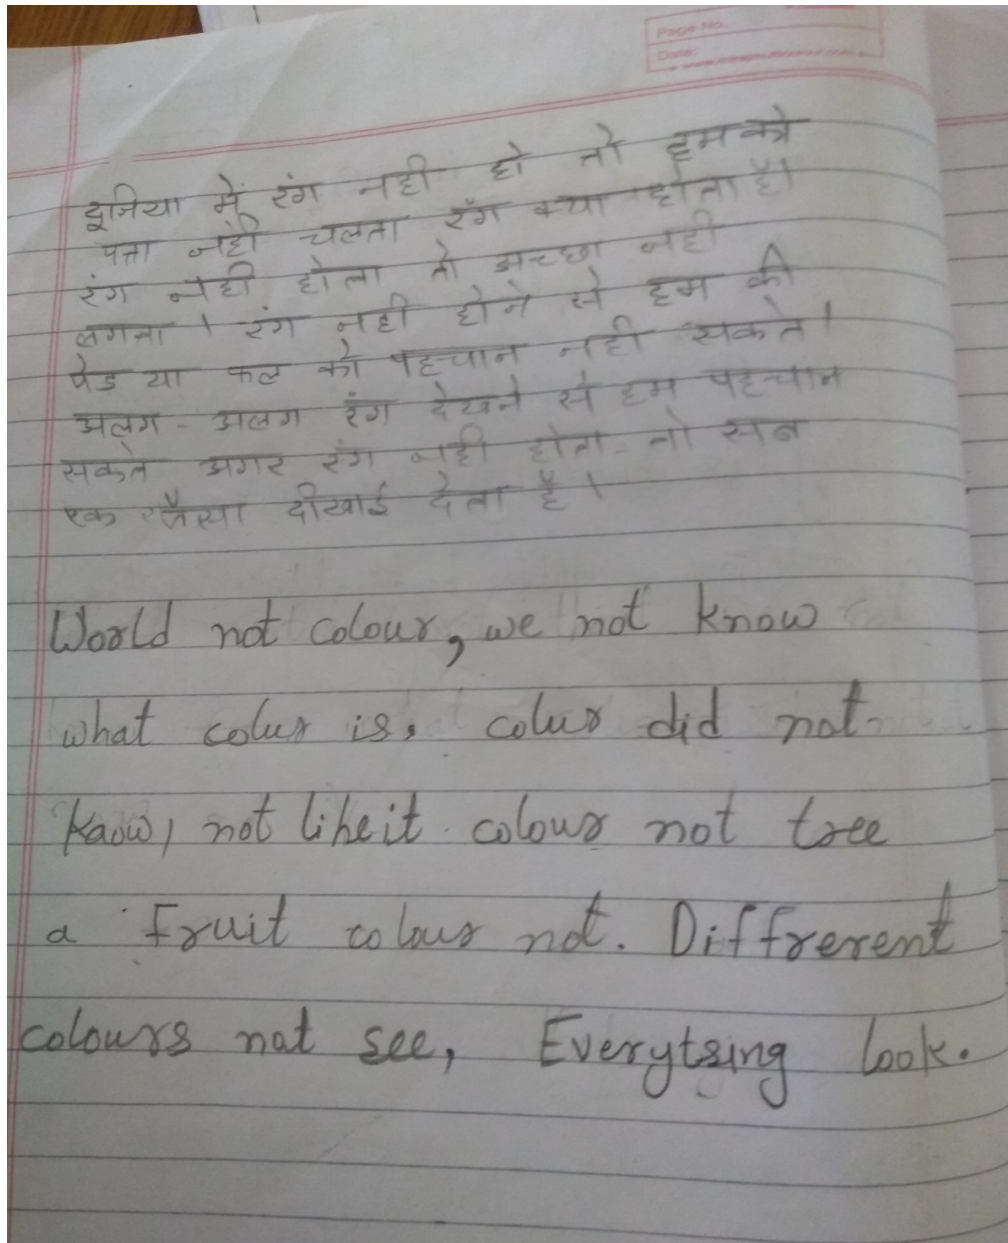 Page No.
Date:
दूनिया में रंग नही हो तो हमको
पता नही चलता रंग क्या होता है।
रंग नही होता तो अच्छा नही
लगता । रंग नही होने से हम की
पेड या फल को पहचान नही सकते।
अलग - अलग रंग देखने से हम पहचान
सकते अगर रंग नही होता तो सब
एक जैसा दीखाई देता है ।
World not colour, we not know
what colur is. colur did not
Kaow, not like it. colour not tree
a Fruit colour not. Diffrerent
colours not see, Everytsing look.